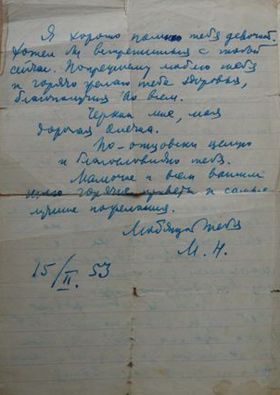 Я хорошо помню тебя девочкой.
Хотел бы встретиться с тобою
сейчас. По-прежнему люблю тебя
и горячо желаю тебе здоровья,
благополучия во всем.
Черкни мне, моя
дорогая
По-отцовски целую
и благословляю тебя.
Мамочке и всем вашим
шлю горячие приветы и самые
лучшие пожелания.
Любящий тебя
М. Н.
15/II. 53